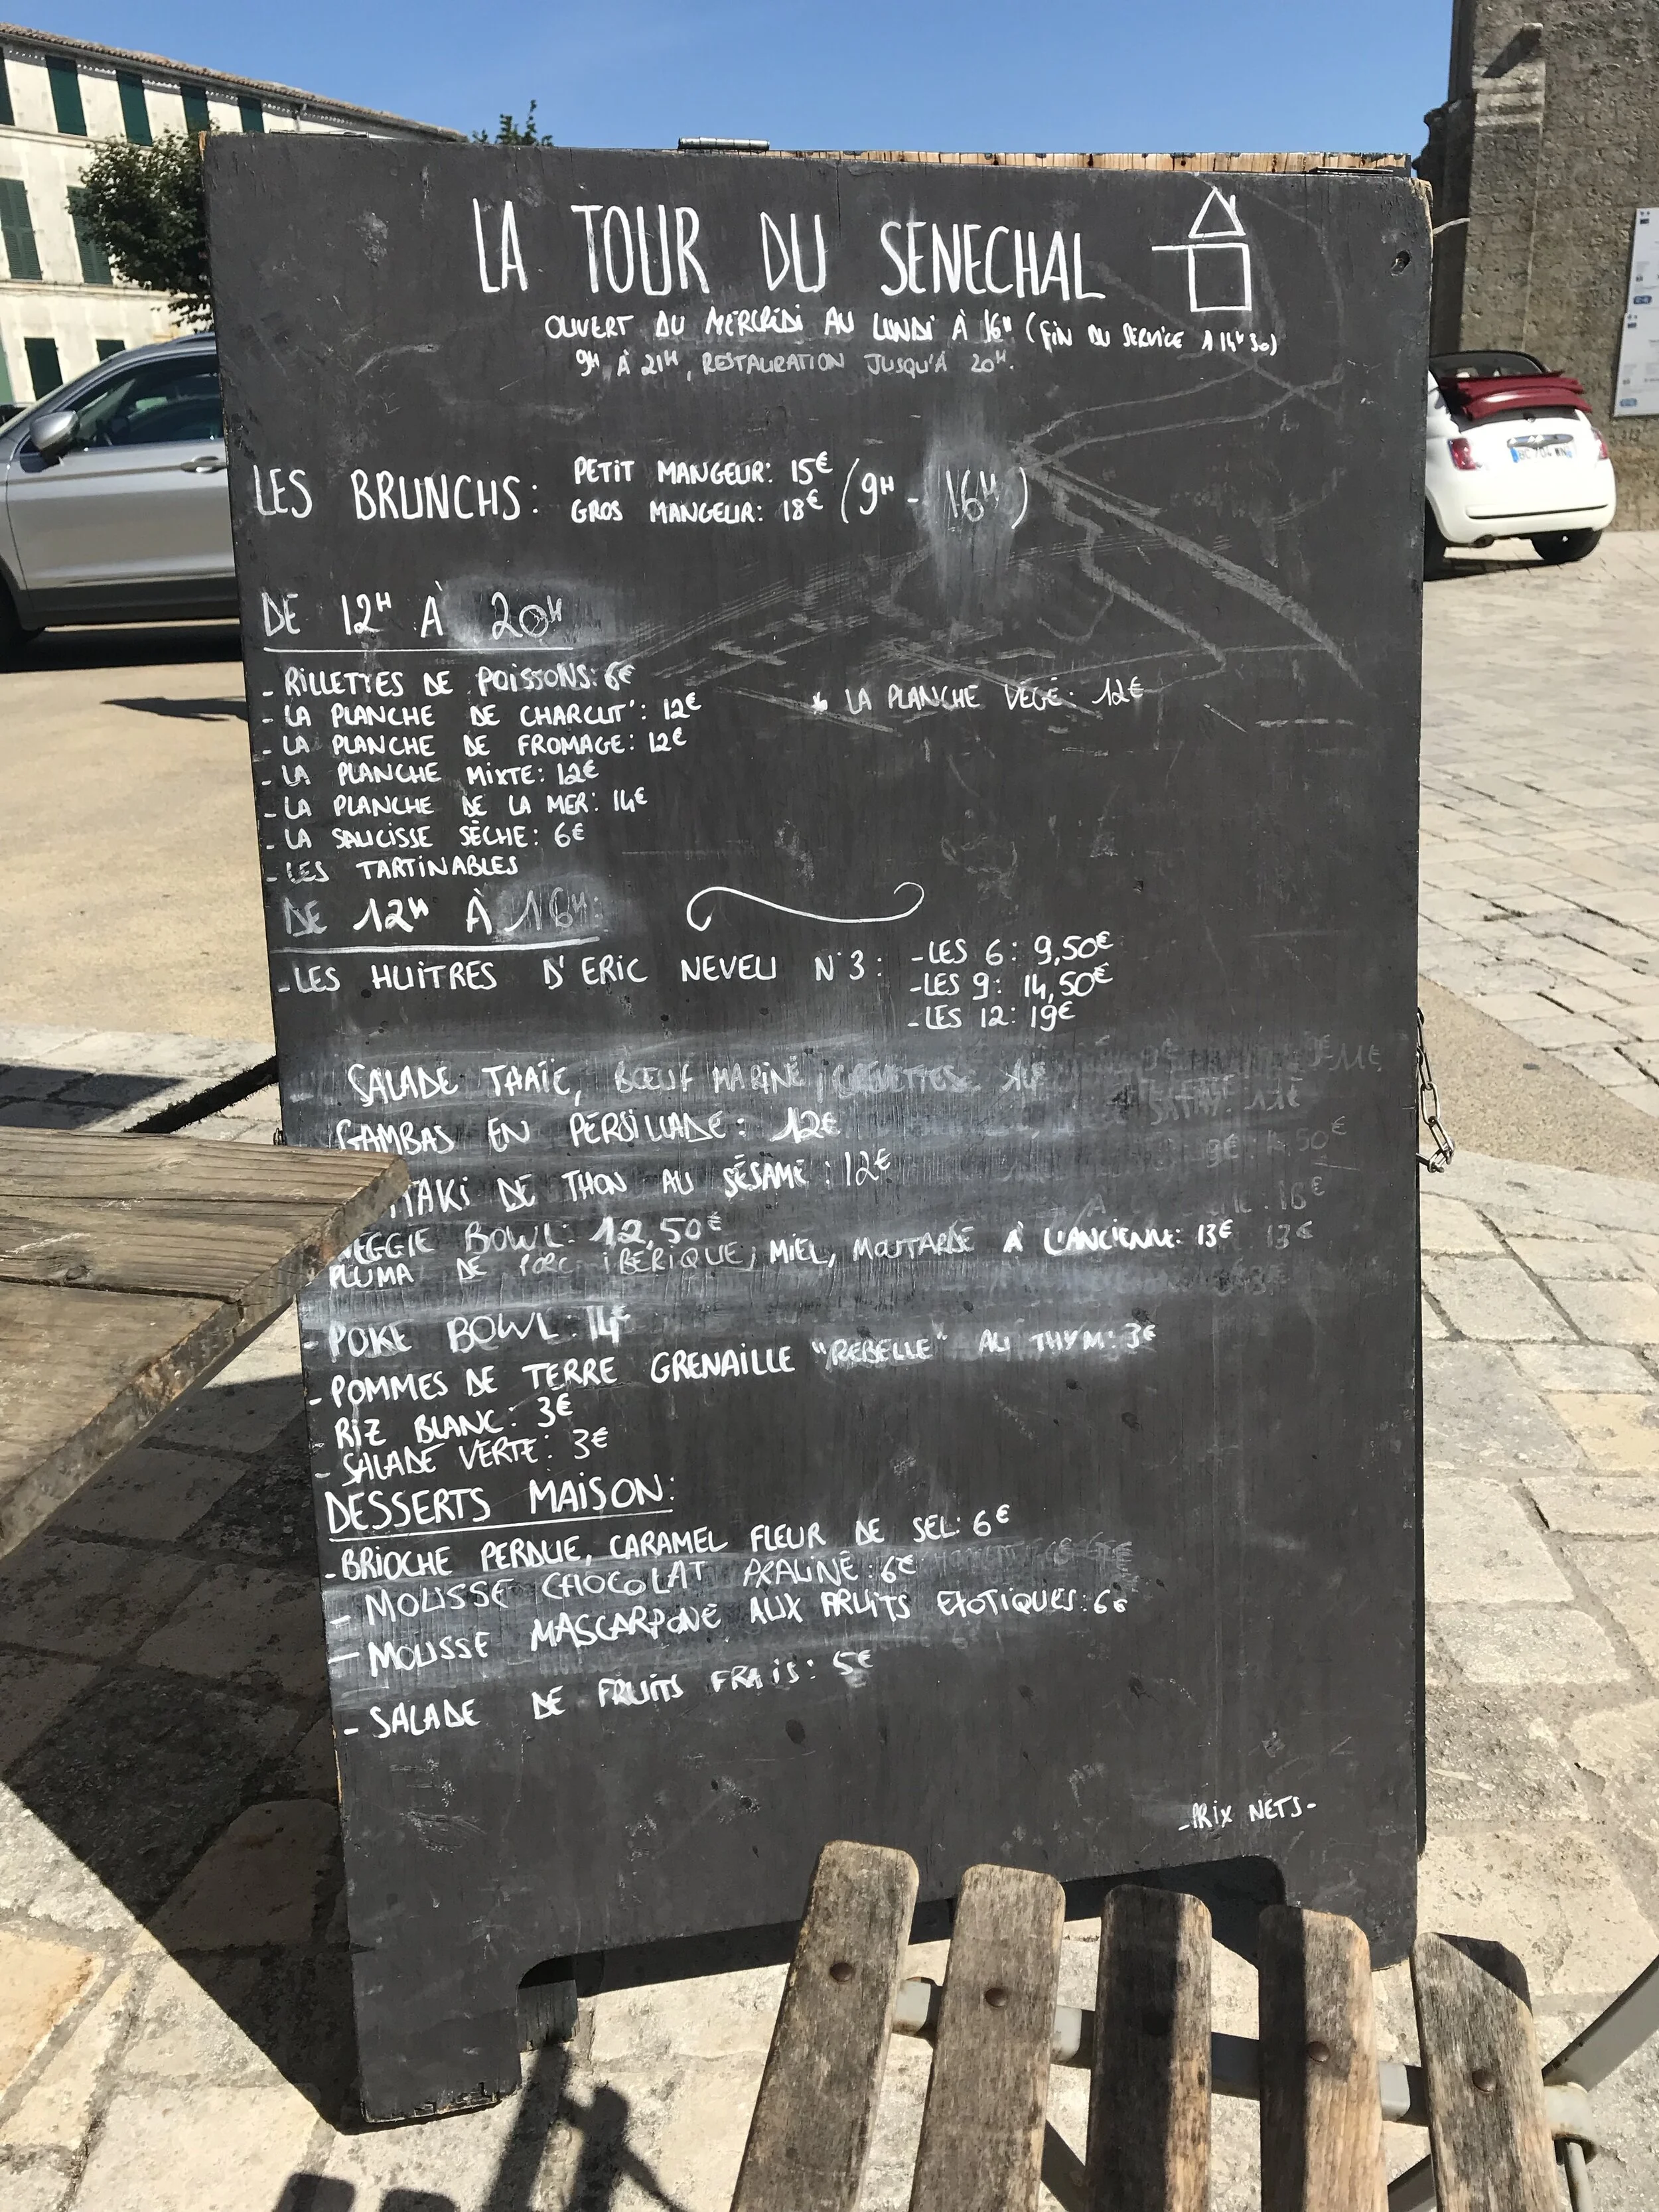 LA TOUR DU SENECHAL
OUVERT DU MERCREDI AU LUNDI À 16H (FIN DU SERVICE À 14H30)
9H À 21H, RESTAURATION JUSQU'À 20H.
LES BRUNCHS: PETIT MANGEUR: 15€
GROS MANGEUR: 18€ (9H - 16H)
DE 12H À 20H
- RILLETTES DE POISSONS: 6€
- LA PLANCHE DE CHARCUT': 12€
* LA PLANCHE VÉGÉ: 12€
- LA PLANCHE DE FROMAGE: 12€
- LA PLANCHE MIXTE: 12€
- LA PLANCHE DE LA MER: 14€
- LA SAUCISSE SÈCHE: 6€
- LES TARTINABLES
DE 12H À 16H:
- LES HUITRES D'ERIC NEVEU N°3: - LES 6: 9,50€
- LES 9: 14,50€
- LES 12: 19€
SALADE THAÏE, BŒUF MARINÉ, CREVETTES
GAMBAS EN PERSILLADE: 12€
TAKI DE THON AU SÉSAME: 12€
VEGGIE BOWL: 12,50€
PLUMA DE PORC IBÉRIQUE, MIEL, MOUTARDE À L'ANCIENNE: 13€ 13€
- POKE BOWL: 14€
- POMMES DE TERRE GRENAILLE "REBELLE" AU THYM: 3€
- RIZ BLANC: 3€
- SALADE VERTE: 3€
DESSERTS MAISON:
- BRIOCHE PERDUE, CARAMEL FLEUR DE SEL: 6€
- MOUSSE CHOCOLAT PRALINÉ: 6€
- MOUSSE MASCARPONE AUX FRUITS EXOTIQUES: 6€
- SALADE DE FRUITS FRAIS: 5€
- PRIX NETS -